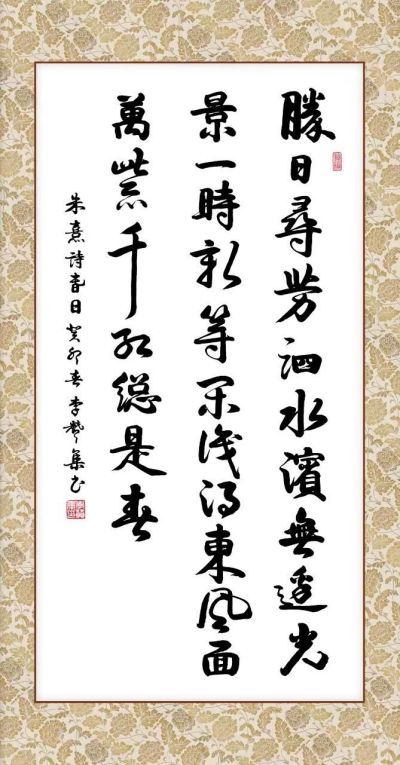 勝日尋芳泗水濱無邊光
景一時新等閑識得東風面
萬紫千紅總是春
朱熹詩春日癸卯春李集書